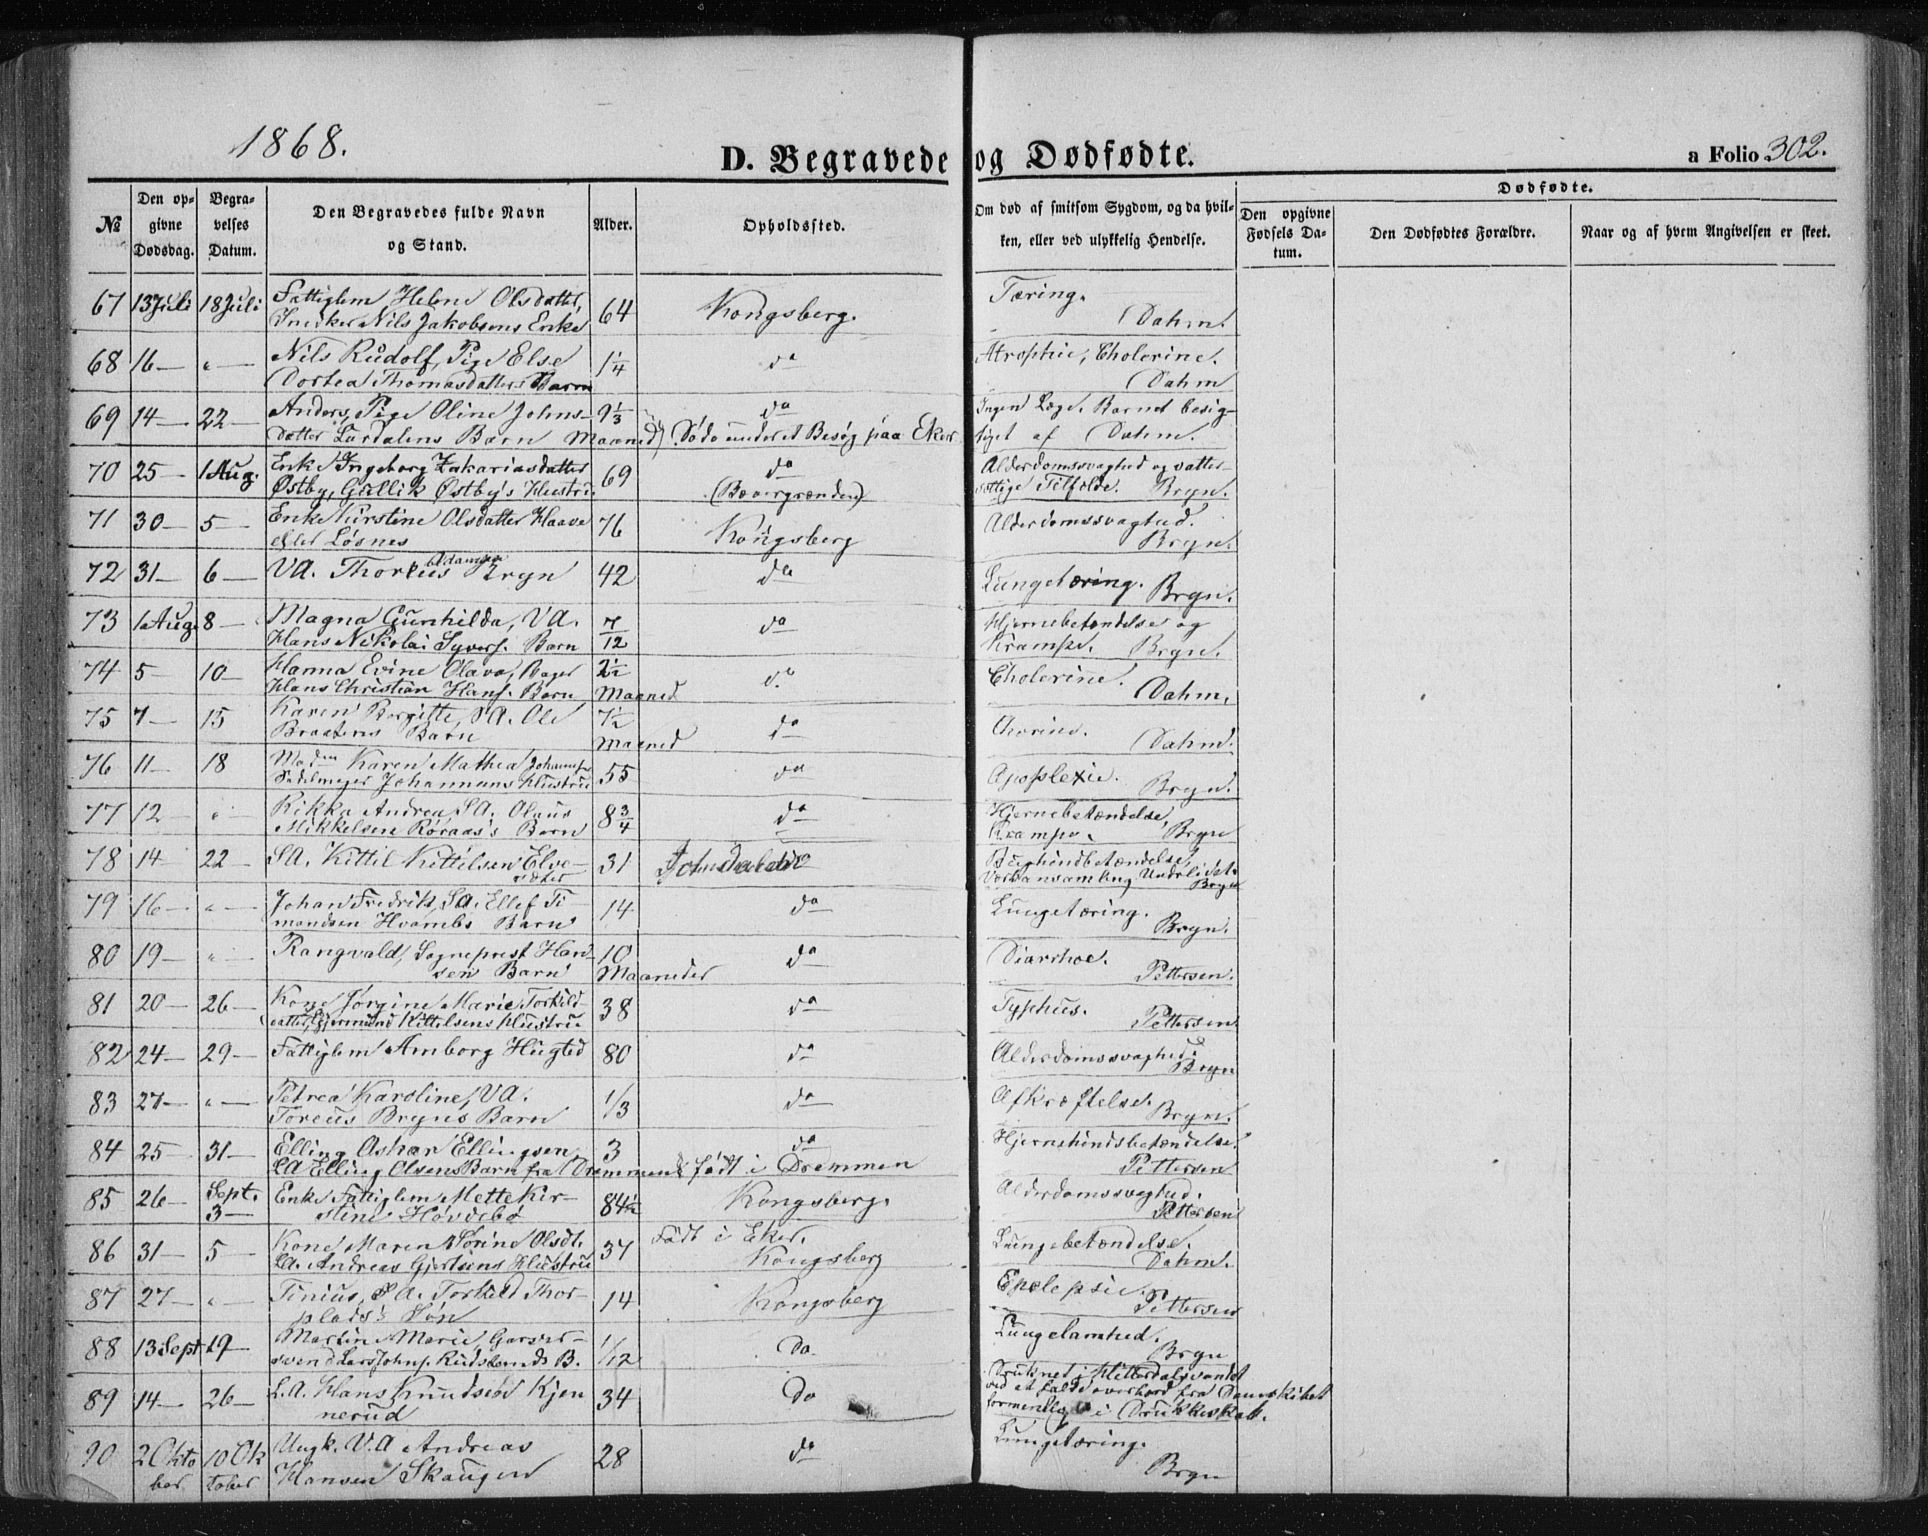 1868.
D. Begravede og Dødfødte.
a Folio 302.
№
Den opgivne Dødsdag.
Begravelses Datum.
Den Begravedes fulde Navn og Stand.
Alder.
Opholdssted.
Om død af smitsom Sygdom, og da hvilken, eller ved ulykkelig Hendelse.
Dødfødte.
Den opgivne Fødsels Datum.
Den Dødfødtes Forældre.
Naar og af hvem Angivelsen er skeet.
67 13 Juli 18 Juli Fattiglem Helene Olsdatter, 64 Kongsberg. Tæring.
Snedker Nils Jakobsens Enke Dahm.
68 16 — " — Nils Rudolf, Pige Else 1¼ do Atrophie, Cholerine.
Dortea Thomasdatters Barn Dahm
69 14 — 22 — Anders, Pige Oline Johns- 9⅓ do Ingen Læge. Barnet besig-
datter Lurdalens Barn Maaned (Døde under et Besøg paa Eker tiget af Dahm.
70 25 — 1 Aug. Enke Ingeborg Zakariasdatter 69 do Alderdomssvaghed og vatter-
Østby, Gullik Østby's Hustru. (Bævergrænden) sottige Tilfælde. Bryn.
71 30 — 5 — Enke Kirstine Olsdatter Haave 76 Kongsberg Alderdomssvaghed.
eller Løsnes Bryn.
72 31 — 6 — VA. Thorkus Adamsen Bryn 42 do Lungetæring. Bryn.
73 1 Aug. 8 — Magna Gunhilda, VA. 7/12 do Hjernebetændelse og
Hans Nikolai Syvers. Barn Krampe. Bryn.
74 5 — 10 — Hanna Evine Olava, Bager 2½ do Cholerine.
Hans Christian Hans. Barn Maaned Dahm.
75 7 — 15 Karen Bergitte, SA. Ole 7½ do
Braatens Barn Maaned Dahm.
76 11 — 18 Madm Karen Mathea Johannes 55 do Apoplexie.
Sadelmager Johannans Hustru Bryn.
77 12 " Rikka Andrea, SA. Olaus 8¾ do Hjernebetændelse,
Mikkelsen Røraas's Barn Krampe. Bryn
78 14 22 — SA. Kittil Kittilsen Elve- 31 Jondalen Bughindbetændelse,
sæter Værkansamling Underlivet. Bryn
79 16 — " — Johan Fredrik, SA. Ellef Ti- 14 do Lungetæring.
mandsen Hvambs Barn Bryn.
80 19 — " — Rangvald, Sogneprest Han- 10 do Diarrhoe.
sen Barn Maaneder Pettersen.
81 20 — 26 — Kone Jørgine Marie Torkild- 38 do Typhus.
datter, Gjermund Kittelsens Hustru. Pettersen
82 24 — 29 — Fattiglem Amborg Hugted 80 do Alderdomssvaghed.
Bryn
83 27 — " — Petrea Karoline, VA. 1/3 do Afkræftelse.
Toreus Bryns Barn Bryn.
84 25 — 31 — Elling Oskar Ellingsen, 3 do Hjernehindsbetændelse.
LA Elling Olsens Barn fra Drammen & født i Drammen Pettersen
85 26 — Sept. 3 — Enke Fattiglem Mette Kir- 84½ Kongsberg. Alderdomssvaghed.
stine Høvdebø Pettersen
86 31 — 5 — Kone Maren Sørine Olsdt. 37 Født i Eker. Lungebetændelse.
LA. Andreas Gjertsens Hustru Kongsberg Dahm.
87 27 — " — Tinius, SA. Torkild Thor- 14 Kongsberg Epelepsie.
plads's Søn Pettersen
88 13 Sept 19 — Martine Marie, Garver- 1/12 Do. Lungelamhed.
svend Lars Johns. Rudstends B. Bryn
89 14 — 26 — L.A. Hans Knudsen Kjen- 34 Do Druknet i Hitterdalsvandet
nerud ved at falde overbord fra Dampskibet
formentlig i Drukkenskab.
90 2 Okto- 10 Ok- Ungk. V.A Andreas 28 do Lungetæring.
ber tober Hansen Skaugen Bryn